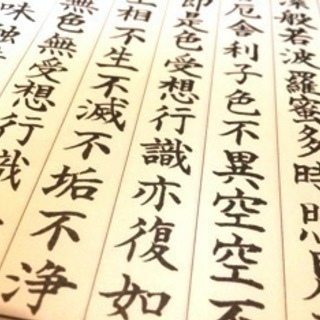 深般若波羅蜜多時照見
厄舎利子色不異空空不
即是色受想行識亦復如
相不生不滅不垢不浄
無色無受想行識
味触